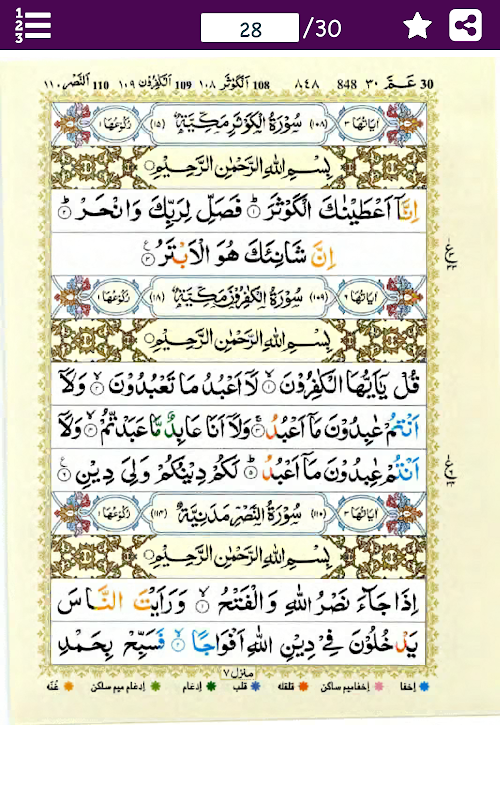 1
2
3
28 /30
30 عَمَّ ٣٠ 848 ٨٤٨ 108 اَلْكَوْثَر ١٠٨ 109 اَلْكٰفِرُوْن ١٠٩ 110 اَلنَّصْر ١١٠
اٰيَاتُهَا ٣ (١٠٨) سُوْرَةُ الْكَوْثَرِ مَكِّيَّةٌ (١٥) رُكُوْعُهَا ١
بِسْمِ اللّٰهِ الرَّحْمٰنِ الرَّحِيْمِ
اِنَّاۤ اَعْطَيْنٰكَ الْكَوْثَرَ ۱ فَصَلِّ لِرَبِّكَ وَانْحَرْ ۲
اِنَّ شَانِئَكَ هُوَ الْاَبْتَرُ ۳
اٰيَاتُهَا ٦ (١٠٩) سُوْرَةُ الْكٰفِرُوْنَ مَكِّيَّةٌ (١٨) رُكُوْعُهَا ١
بِسْمِ اللّٰهِ الرَّحْمٰنِ الرَّحِيْمِ
قُلْ يٰۤاَيُّهَا الْكٰفِرُوْنَ ۱ لَاۤ اَعْبُدُ مَا تَعْبُدُوْنَ ۲ وَلَاۤ
اَنْتُمْ عٰبِدُوْنَ مَاۤ اَعْبُدُ ۳ وَلَاۤ اَنَا عَابِدٌ مَّا عَبَدْتُّمْ ۴ وَلَاۤ
اَنْتُمْ عٰبِدُوْنَ مَاۤ اَعْبُدُ ۵ لَكُمْ دِيْنُكُمْ وَلِيَ دِيْنِ ۶
اٰيَاتُهَا ٣ (١١٠) سُوْرَةُ النَّصْرِ مَدَنِيَّةٌ (١١٤) رُكُوْعُهَا ١
بِسْمِ اللّٰهِ الرَّحْمٰنِ الرَّحِيْمِ
اِذَا جَآءَ نَصْرُ اللّٰهِ وَالْفَتْحُ ۱ وَرَاَيْتَ النَّاسَ
يَدْخُلُوْنَ فِيْ دِيْنِ اللّٰهِ اَفْوَاجًا ۲ فَسَبِّحْ بِحَمْدِ
منزل ٧
اِخفا اِخفامیم ساکن قلقله قلب اِدغام اِدغام میم ساکن غُنّه